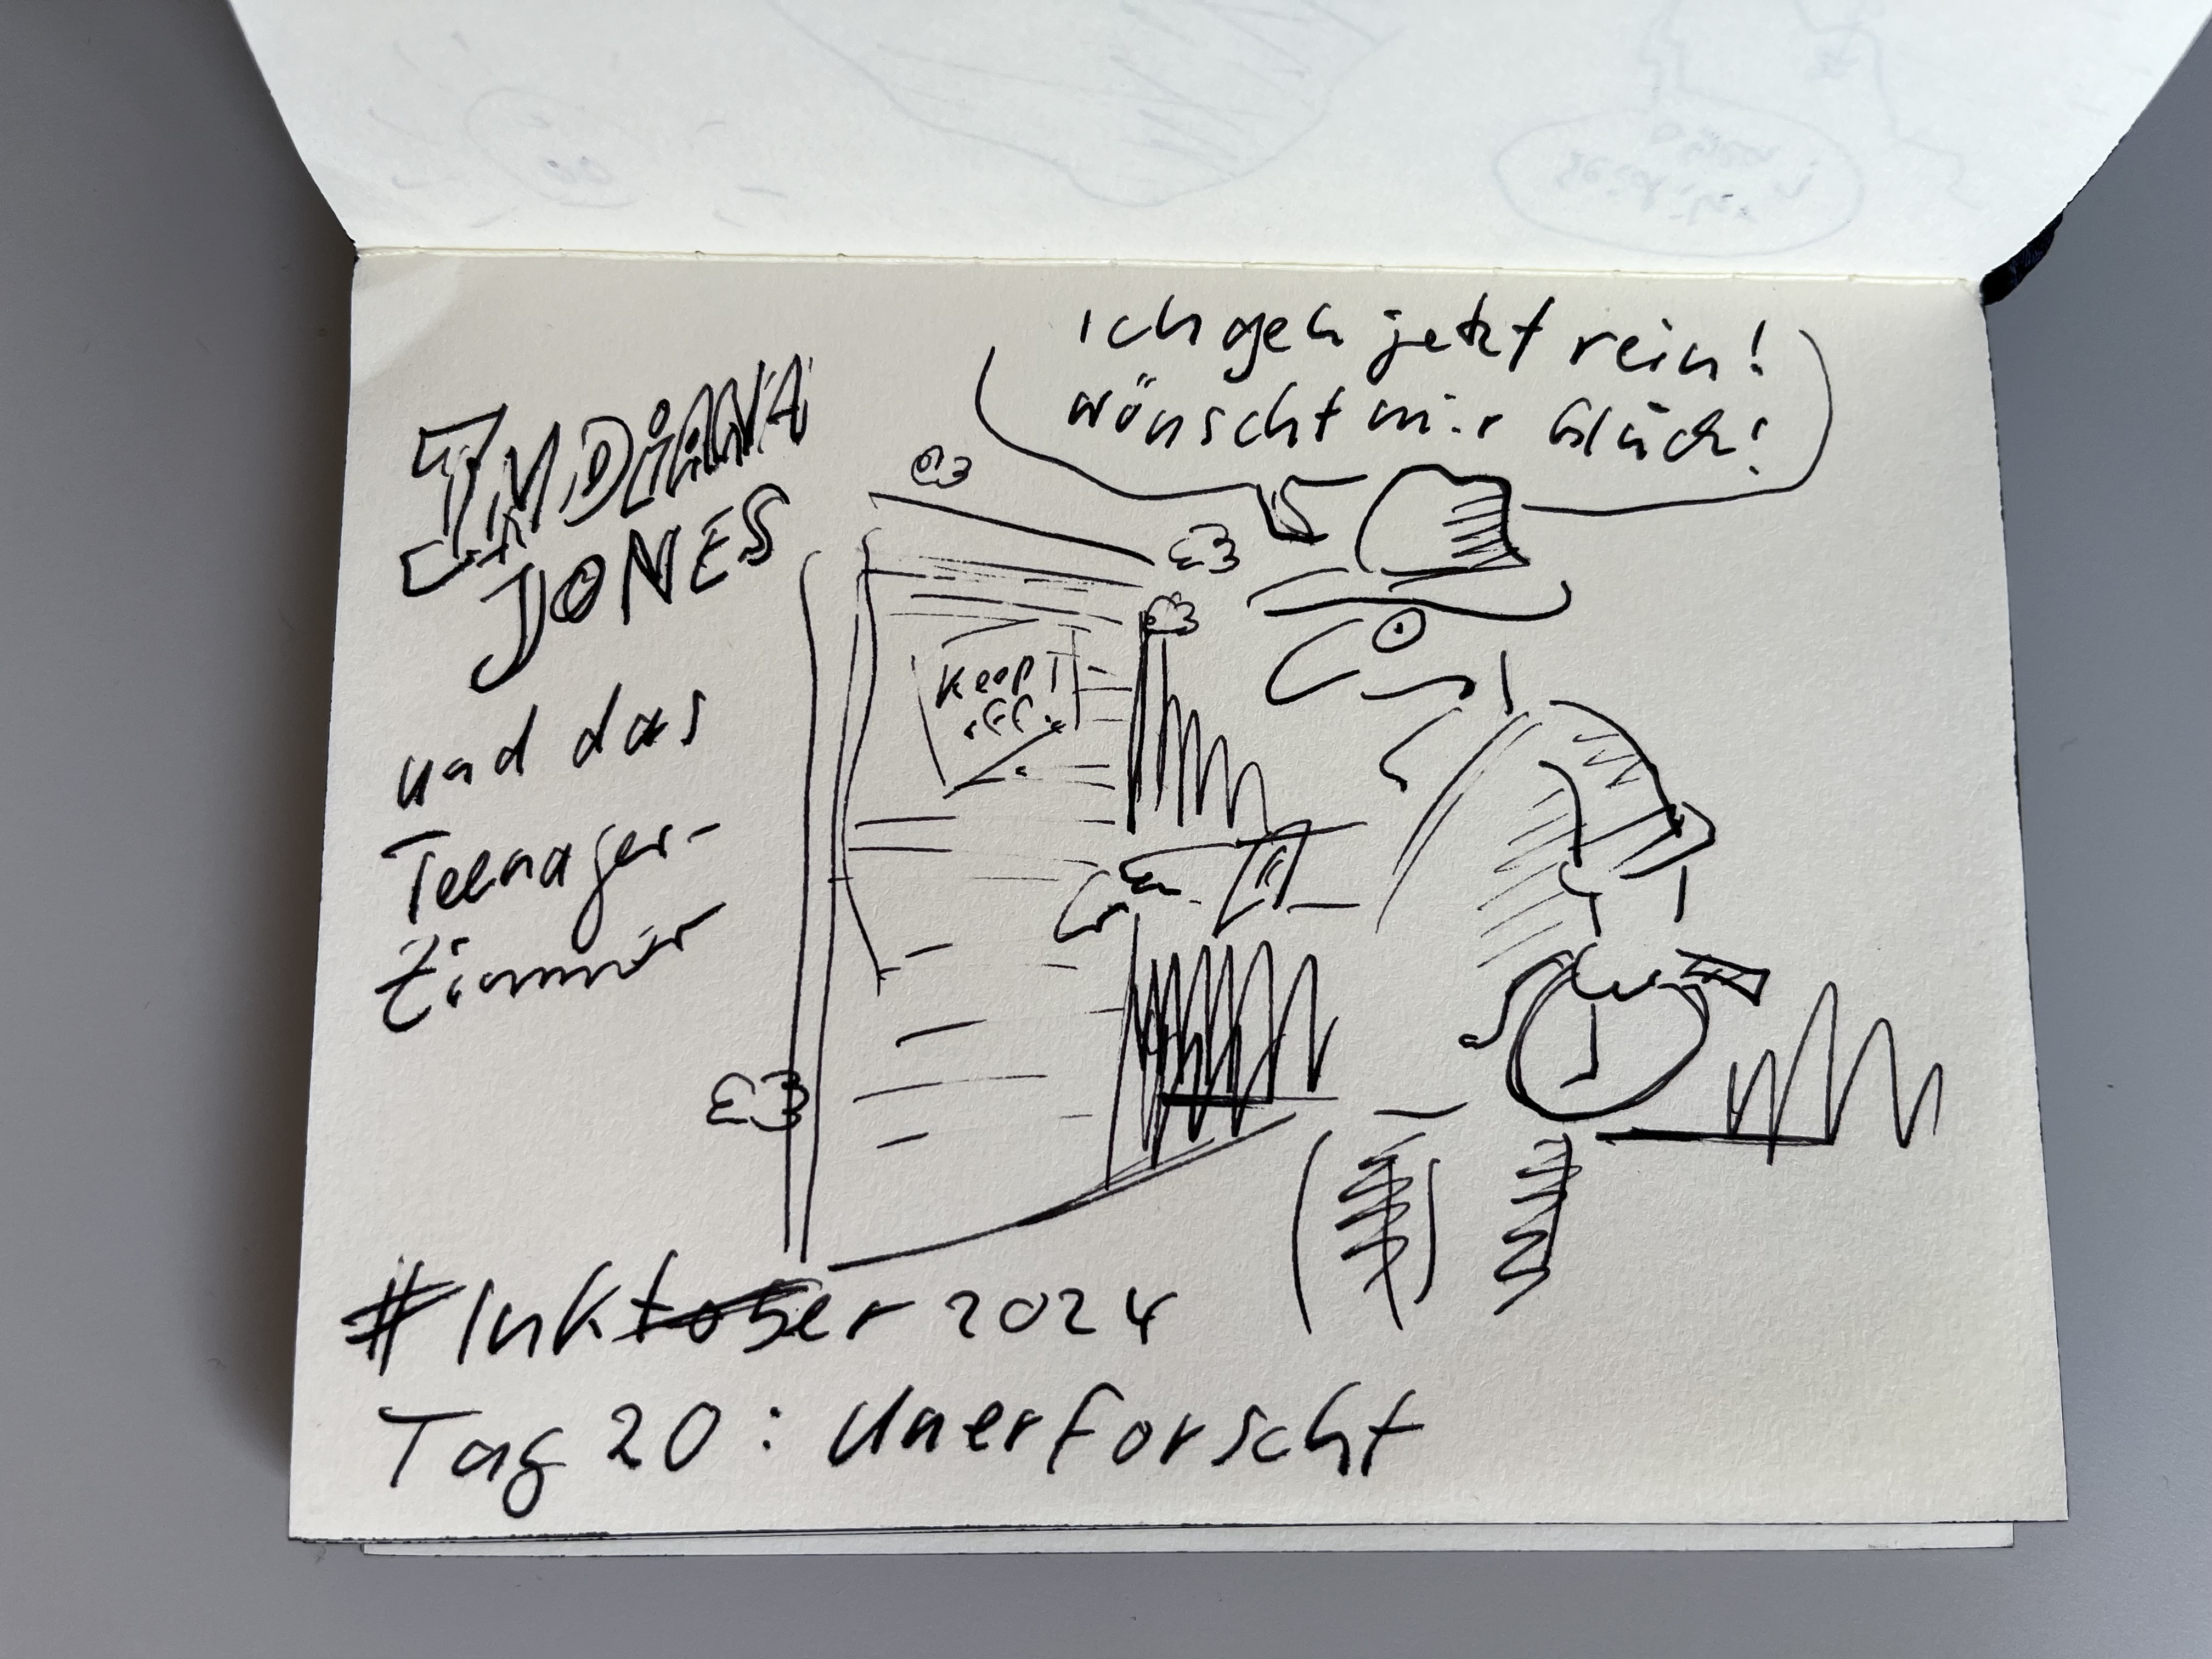 Ich geh jetzt rein!
wünscht mir Glück!
INDiANA
JONES
und das
Teenager-
Zimmer
Keep
#Inktober 2024
Tag 20: Unerforscht